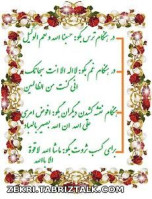 در هنگام ترس بگو: حسبنا الله و نعم الوکیل
در هنگام غم بگو: لااله الا انت سبحانک
انی کنت من الظالمین
در هنگام نقشه کشیدن دیگران بگو: افوض امری
علی الله ان الله بصیر بالعباد
برای کسب ثروت بگو: ماشا الله لاقوة
الا بالله
ZEKRI.TABRIZTALK.COM